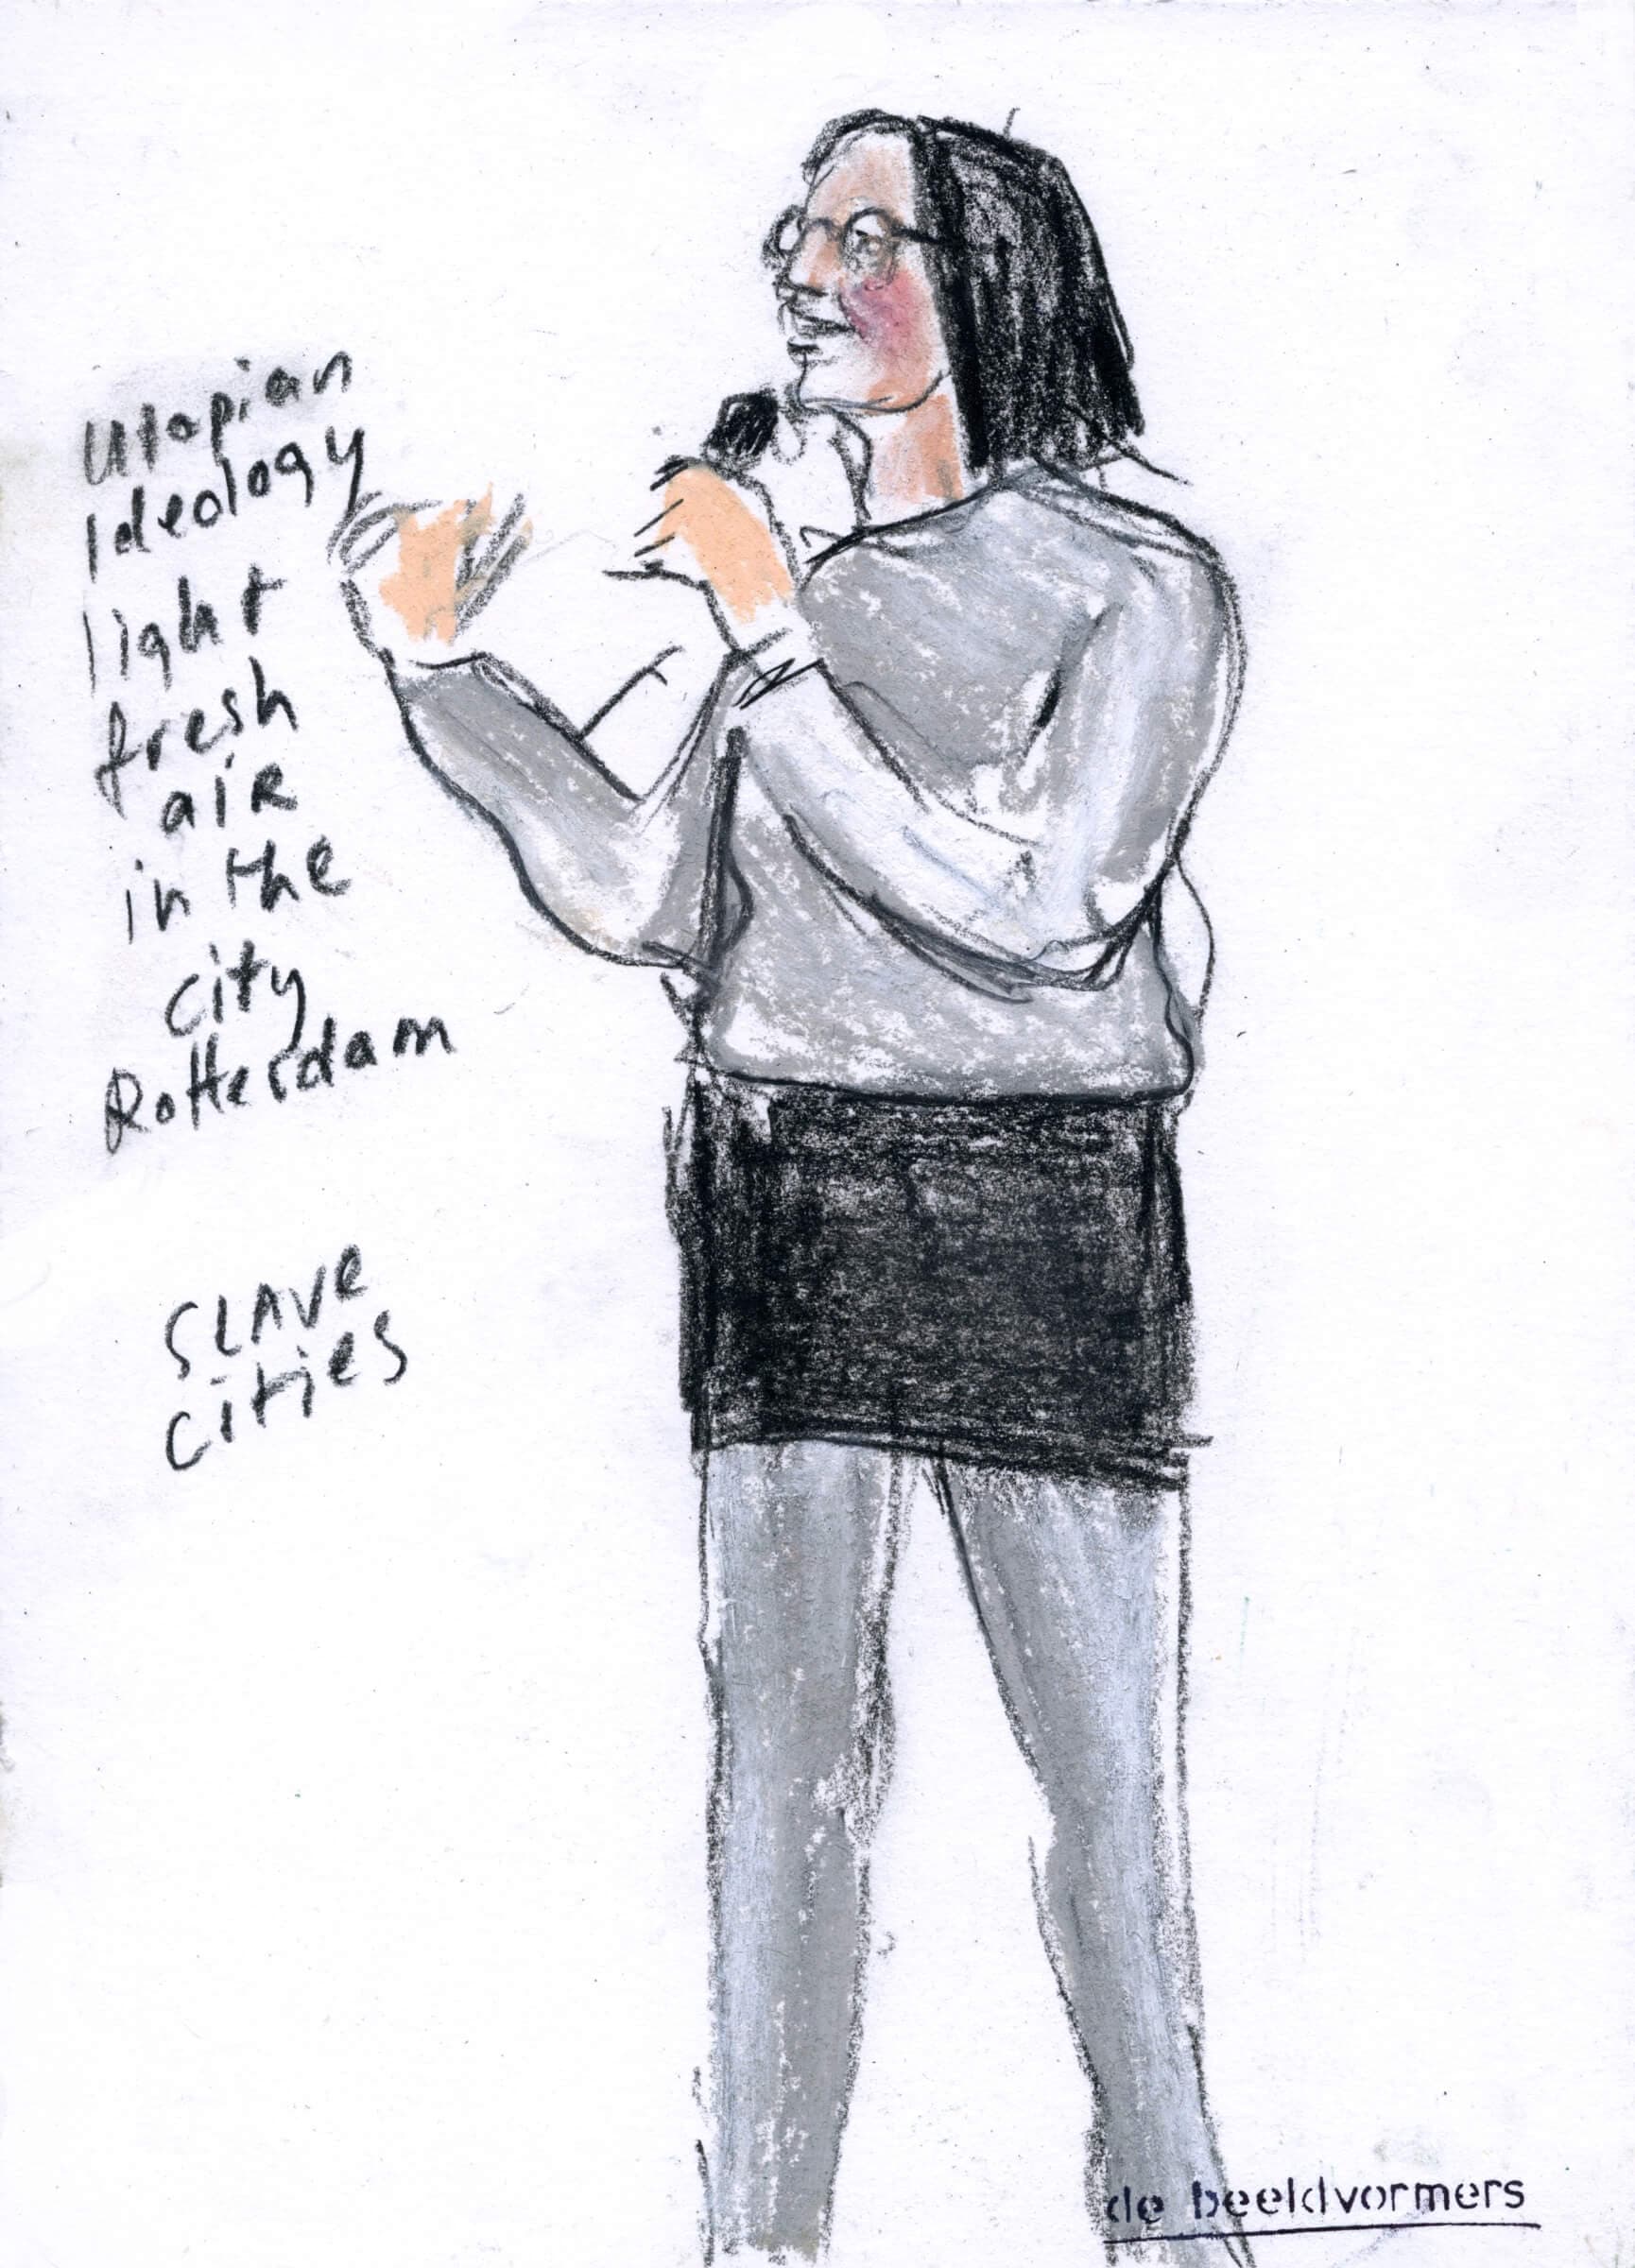 Utopian
Ideology
light
fresh
aiR
in the
city
Rotterdam
SLAVe
cities
de beeldvormers